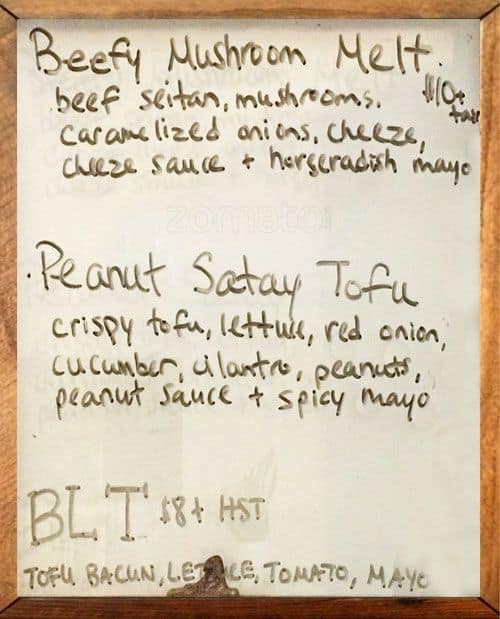 Beefy Mushroom Melt.
beef seitan, mushrooms. $10+
caramelized onions, cheeze, tax
cheeze sauce + horseradish mayo
zomato
·Peanut Satay Tofu
crispy tofu, lettuce, red onion,
cucumber, cilantro, peanuts,
peanut sauce + spicy mayo
BLT $8+ HST
TOFU BACUN, LETTUCE, TOMATO, MAYO